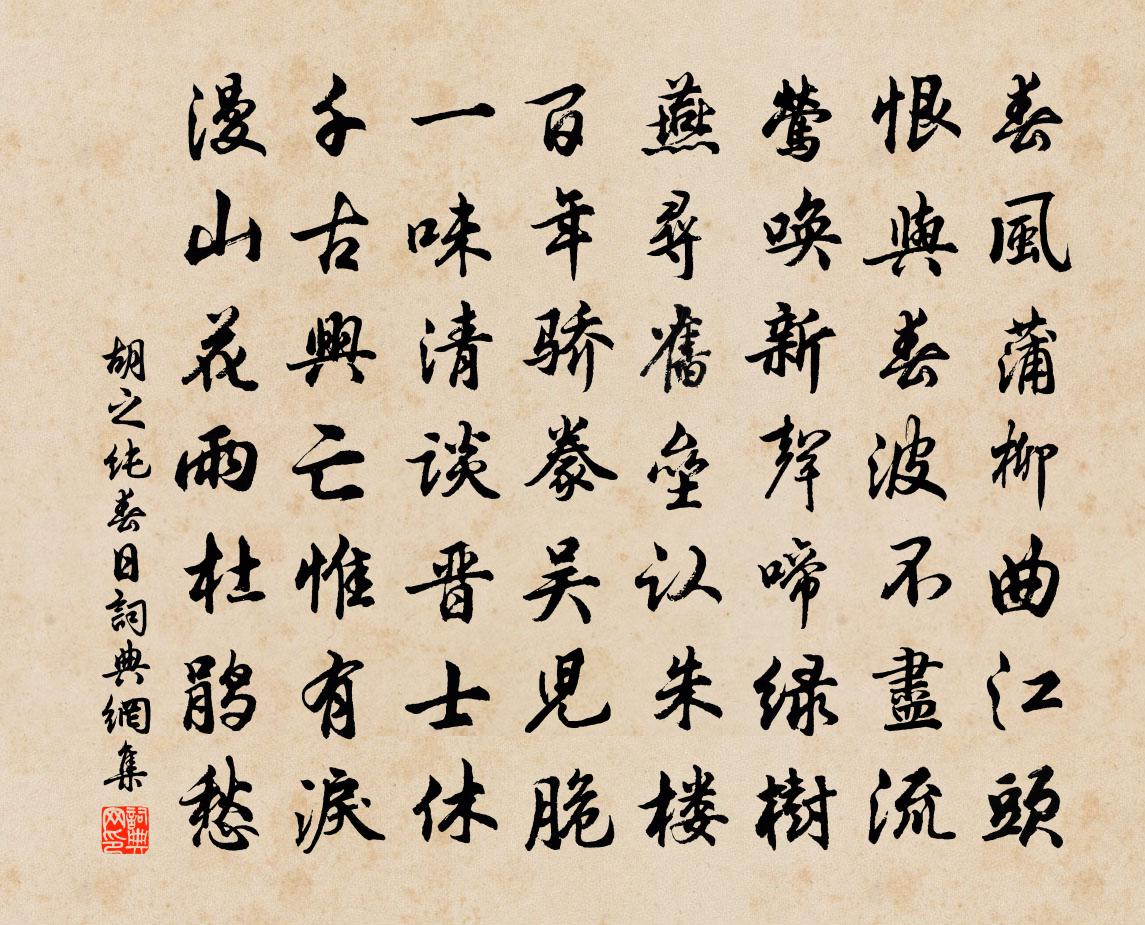 春風蒲柳曲江頭
恨與春波不盡流
鶯喚新聲啼绿樹
燕尋舊壘认朱楼
百年骄豢吴兒脆
一味清談晋士休
千古興亡惟有淚
漫山花雨杜鹃愁
胡之纯春日詞典網集
詞典网印